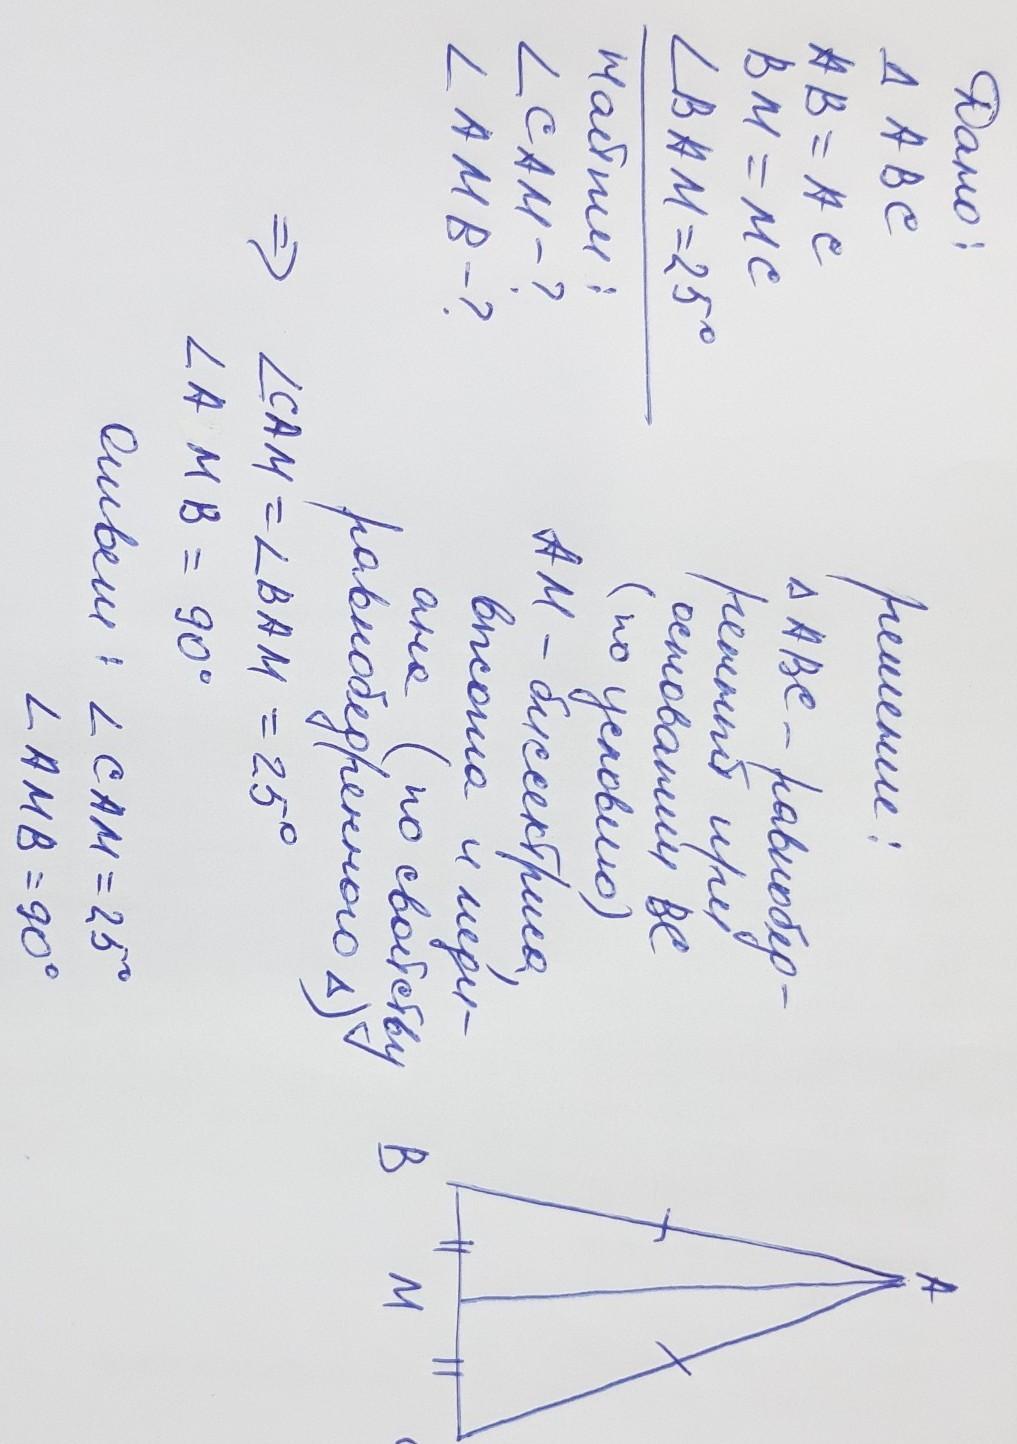 Дано:
△ ABC
AB = AC
BM = MC
∠BAM = 25°
Найти:
∠CAM - ?
∠AMB - ?
решение:
△ ABC - равнобед-
ренный при
основании BC
(по условию)
AM - биссектриса,
высота и меди-
ана (по свойству
равнобедренного △)
⇒ ∠CAM = ∠BAM = 25°
∠AMB = 90°
Ответ: ∠CAM = 25°
∠AMB = 90°
A
B
M